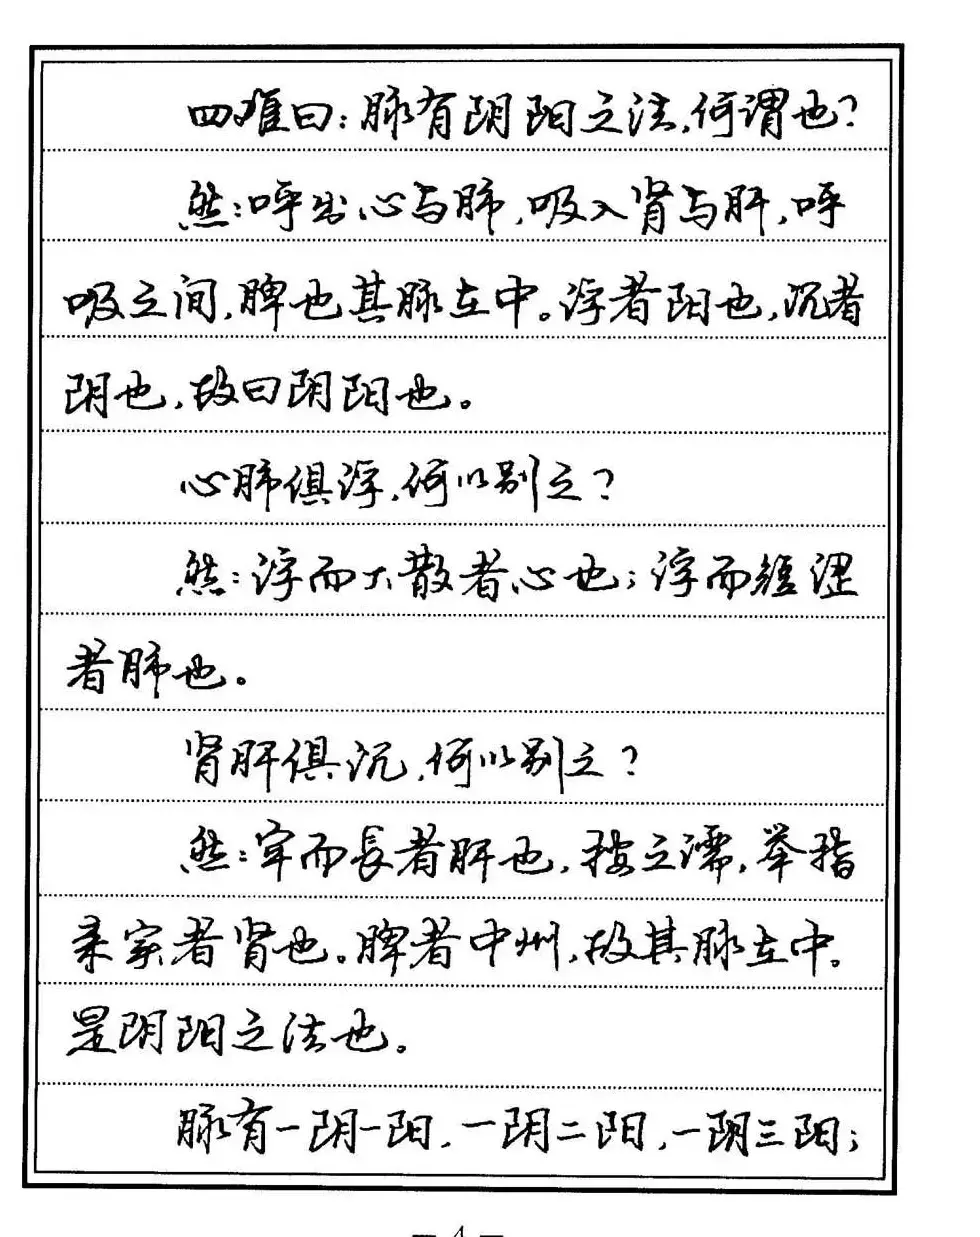 四难曰：脉有阴阳之法，何谓也？
然：呼出心与肺，吸入肾与肝，呼
吸之间，脾也其脉在中。浮者阳也，沉者
阴也，故曰阴阳也。
心肺俱浮，何以别之？
然：浮而大散者心也；浮而短涩
者肺也。
肾肝俱沉，何以别之？
然：牢而長者肝也，按之濡，举指
来实者肾也。脾者中州，故其脉在中。
是阴阳之法也。
脉有一阴一阳，一阴二阳，一阴三阳；
— 4 —